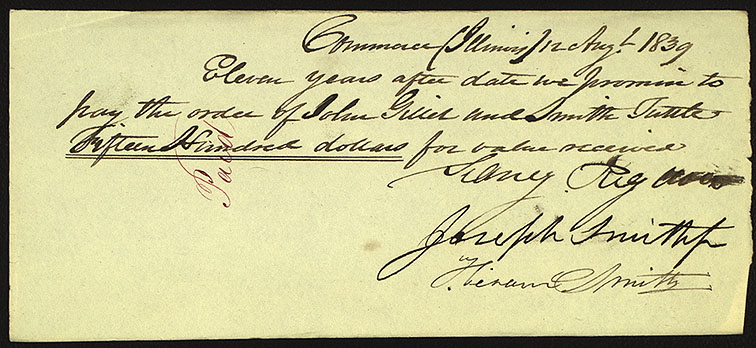 Commerce (Illinois) 12 Augt 1839
Eleven years after date we promise to
pay the order of John Gillet and Smith Tuttle
Fifteen Hundred dollars for value received
Paid
Sidney Rigdon
Joseph Smith
Hiram Smith